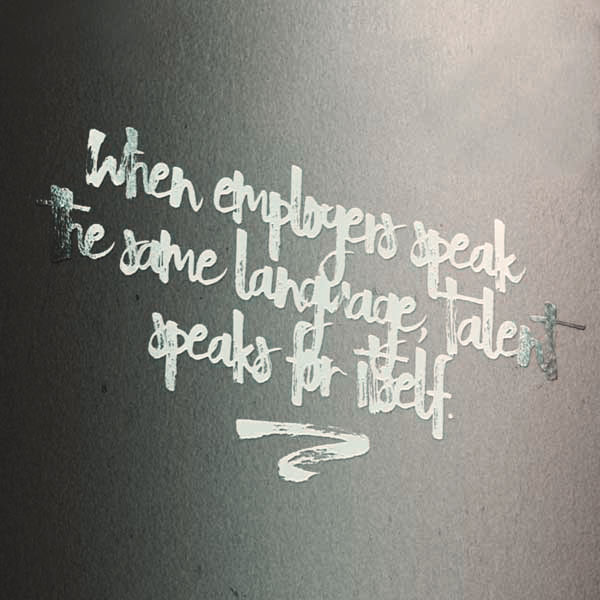 When employers speak
the same language, talent
speaks for itself.